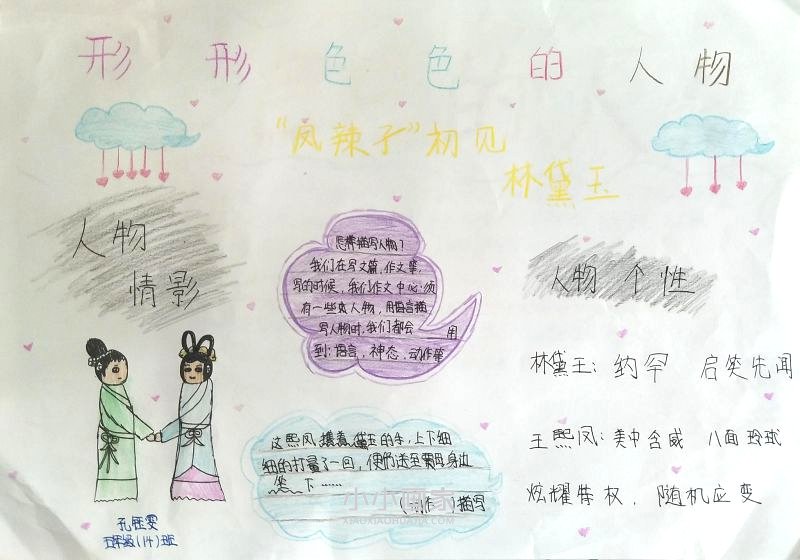 形形色色的人物
“凤辣子”初见
林黛玉
人物
情影
怎样描写人物？
我们在写文篇，作文集，
写的时候，我们作文中心须
有一些或人物，用语言描
写人物时，我们都会用
到：语言，神态，动作等
人物个性
林黛玉：约罕 启笑先闻
王熙凤：美中含威 八面玲珑
炫耀特权，随机应变
这熙凤携着黛玉的手，上下细
细的打量了一回，便仍送至贾母身边
坐下……
（动作）描写
孔钰雯
五年级（14）班
小小画家
XIAOXIAOHUAJIA.COM